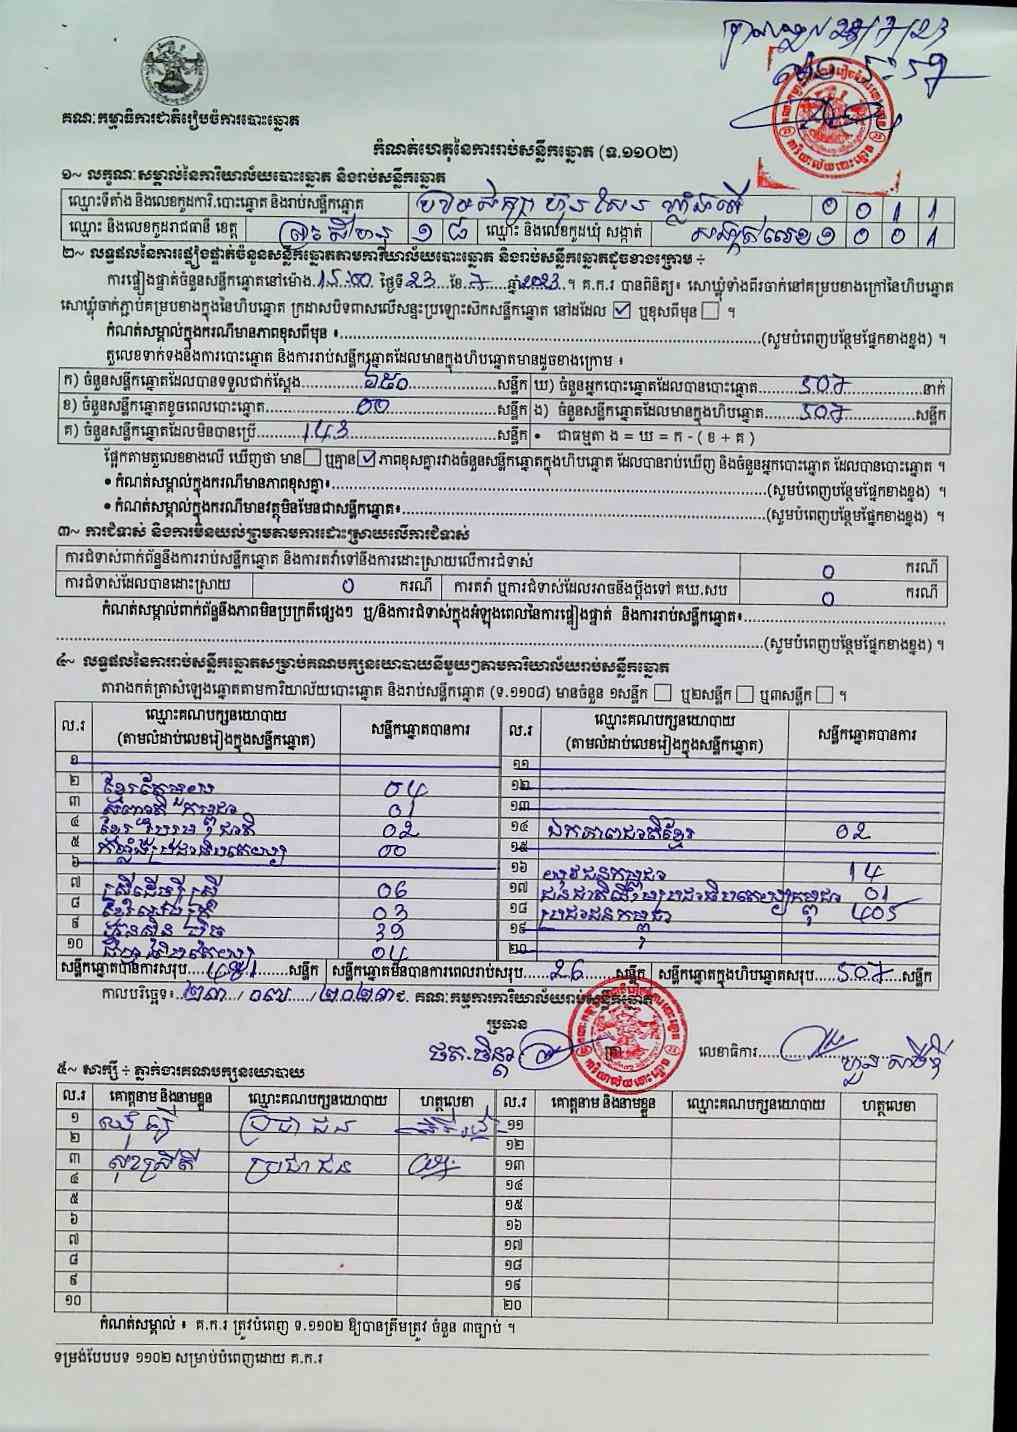 គណៈកម្មាធិការជាតិរៀបចំការបោះឆ្នោត
កំណត់ហេតុនៃការរាប់សន្លឹកឆ្នោត (ទ.១១០២)
១~ លក្ខណៈសម្គាល់នៃការិយាល័យបោះឆ្នោត និងរាប់សន្លឹកឆ្នោត
ឈ្មោះទីតាំង និងលេខកូដការិ.បោះឆ្នោត និងរាប់សន្លឹកឆ្នោត 0 0 1 1
ឈ្មោះ និងលេខកូដរាជធានី ខេត្ត ព្រះសីហនុ ១ ៨ ឈ្មោះ និងលេខកូដឃុំ សង្កាត់ សង្កាត់លេខ១ 0 0 1
២~ លទ្ធផលនៃការផ្ទៀងផ្ទាត់ចំនួនសន្លឹកឆ្នោតតាមការិយាល័យបោះឆ្នោត និងរាប់សន្លឹកឆ្នោតដូចខាងក្រោម ÷
ការផ្ទៀងផ្ទាត់ចំនួនសន្លឹកឆ្នោតនៅម៉ោង 15:00 ថ្ងៃទី 23 ខែ 7 ឆ្នាំ 2023 ។ គ.ក.រ បានពិនិត្យ៖ សោឃ្លុំទាំងពីរចាក់នៅគម្របខាងក្រៅនៃហិបឆ្នោត
សោឃ្លុំចាក់ភ្ជាប់គម្របខាងក្នុងនៃហិបឆ្នោត ក្រដាសបិទពាសលើសន្ទះប្រឡោះស៊កសន្លឹកឆ្នោត នៅដដែល ☑ ឬខុសពីមុន ☐ ។
កំណត់សម្គាល់ក្នុងករណីមានភាពខុសពីមុន ៖ (សូមបំពេញបន្ថែមផ្នែកខាងខ្នង) ។
តួលេខទាក់ទងនឹងការបោះឆ្នោត និងការរាប់សន្លឹកឆ្នោតដែលមានក្នុងហិបឆ្នោតមានដូចខាងក្រោម ៖
ក) ចំនួនសន្លឹកឆ្នោតដែលបានទទួលជាក់ស្តែង ៦៥០ សន្លឹក ឃ) ចំនួនអ្នកបោះឆ្នោតដែលបានបោះឆ្នោត 507 នាក់
ខ) ចំនួនសន្លឹកឆ្នោតខូចពេលបោះឆ្នោត 00 សន្លឹក ង) ចំនួនសន្លឹកឆ្នោតដែលមានក្នុងហិបឆ្នោត 507 សន្លឹក
គ) ចំនួនសន្លឹកឆ្នោតដែលមិនបានប្រើ 143 សន្លឹក • ជាធម្មតា ង = ឃ = ក - ( ខ + គ )
ផ្អែកតាមតួលេខខាងលើ ឃើញថា មាន ☐ ឬគ្មាន ☑ ភាពខុសគ្នារវាងចំនួនសន្លឹកឆ្នោតក្នុងហិបឆ្នោត ដែលបានរាប់ឃើញ និងចំនួនអ្នកបោះឆ្នោត ដែលបានបោះឆ្នោត ។
• កំណត់សម្គាល់ក្នុងករណីមានភាពខុសគ្នា៖ (សូមបំពេញបន្ថែមផ្នែកខាងខ្នង) ។
• កំណត់សម្គាល់ក្នុងករណីមានវត្ថុមិនមែនជាសន្លឹកឆ្នោត៖ (សូមបំពេញបន្ថែមផ្នែកខាងខ្នង) ។
៣~ ការជំទាស់ និងការមិនយល់ព្រមតាមការដោះស្រាយលើការជំទាស់
ការជំទាស់ពាក់ព័ន្ធនឹងការរាប់សន្លឹកឆ្នោត និងការតវ៉ាទៅនឹងការដោះស្រាយលើការជំទាស់ 0 ករណី
ការជំទាស់ដែលបានដោះស្រាយ 0 ករណី ការតវ៉ា ឬការជំទាស់ដែលអាចនឹងប្តឹងទៅ គឃ.សប 0 ករណី
កំណត់សម្គាល់ពាក់ព័ន្ធនឹងភាពមិនប្រក្រតីផ្សេងៗ ឬ/និងការជំទាស់ក្នុងអំឡុងពេលនៃការផ្ទៀងផ្ទាត់ និងការរាប់សន្លឹកឆ្នោត៖
(សូមបំពេញបន្ថែមផ្នែកខាងខ្នង) ។
៤~ លទ្ធផលនៃការរាប់សន្លឹកឆ្នោតសម្រាប់គណបក្សនយោបាយនីមួយៗតាមការិយាល័យរាប់សន្លឹកឆ្នោត
តារាងកត់ត្រាសំឡេងឆ្នោតតាមការិយាល័យបោះឆ្នោត និងរាប់សន្លឹកឆ្នោត (ទ.១១០៨) មានចំនួន ១សន្លឹក ☐ ឬ២សន្លឹក ☐ ឬ៣សន្លឹក ☐ ។
ល.រ ឈ្មោះគណបក្សនយោបាយ (តាមលំដាប់លេខរៀងក្នុងសន្លឹកឆ្នោត) សន្លឹកឆ្នោតបានការ ល.រ ឈ្មោះគណបក្សនយោបាយ (តាមលំដាប់លេខរៀងក្នុងសន្លឹកឆ្នោត) សន្លឹកឆ្នោតបានការ
១ ១១
២ ខ្មែរតែមួយ 04 ១២
៣ 01 ១៣
៤ 02 ១៤ ឯកភាពជាតិខ្មែរ 02
៥ 00 ១៥
៦ ១៦ យុវជនកម្ពុជា 14
៧ ស្ត្រីដើម្បីស្ត្រី 06 ១៧ 01
៨ 03 ១៨ ប្រជាជនកម្ពុជា 405
៩ ហ៊្វុនស៊ិនប៉ិច 39 ១៩
១០ 04 ២០
សន្លឹកឆ្នោតបានការសរុប 481 សន្លឹក សន្លឹកឆ្នោតមិនបានការពេលរាប់សរុប 26 សន្លឹក សន្លឹកឆ្នោតក្នុងហិបឆ្នោតសរុប 507 សន្លឹក
កាលបរិច្ឆេទ៖ ២៣/០៧/២០២៣ គណៈកម្មការការិយាល័យរាប់សន្លឹកឆ្នោត
ប្រធាន
លេខាធិការ
៥~ សាក្សី ÷ ភ្នាក់ងារគណបក្សនយោបាយ
ល.រ គោត្តនាម និងនាមខ្លួន ឈ្មោះគណបក្សនយោបាយ ហត្ថលេខា ល.រ គោត្តនាម និងនាមខ្លួន ឈ្មោះគណបក្សនយោបាយ ហត្ថលេខា
១ ប្រជាជន ១១
២ ១២
៣ ប្រជាជន ១៣
៤ ១៤
៥ ១៥
៦ ១៦
៧ ១៧
៨ ១៨
៩ ១៩
១០ ២០
កំណត់សម្គាល់ ៖ គ.ក.រ ត្រូវបំពេញ ទ.១១០២ ឱ្យបានត្រឹមត្រូវ ចំនួន ៣ច្បាប់ ។
ទម្រង់បែបបទ ១១០២ សម្រាប់បំពេញដោយ គ.ក.រ